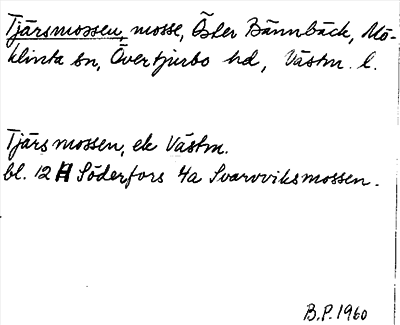 Tjärsmossen, mosse, Öster Bännbäck, Mö-
klinta sn, Övertjurbo hd, Västm. l.
Tjärsmossen, ek Västm.
bl. 12 H Söderfors 4a Svarvviksmossen.
B.P. 1960